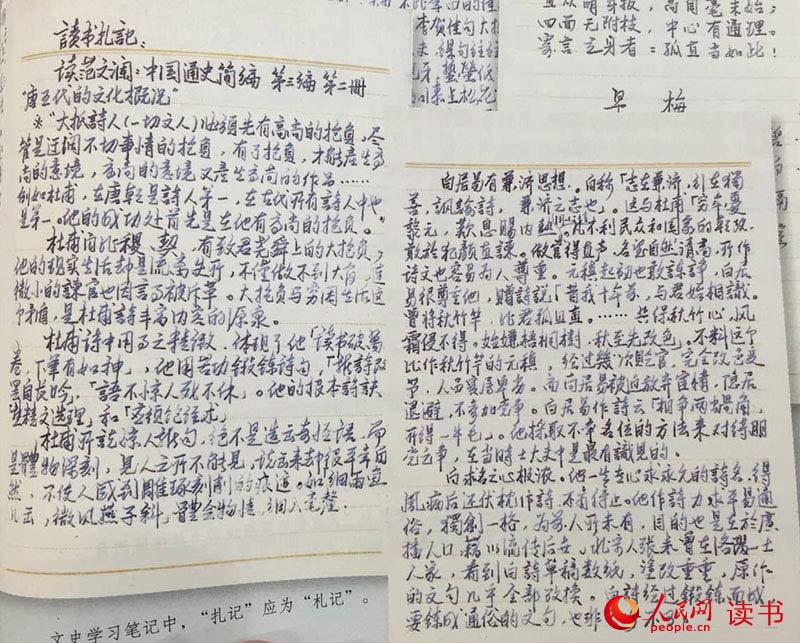 讀书札記：
读范文瀾：中国通史简編 第三編 第二冊
"唐五代的文化概况"
※"大抵詩人(一切文人)必須先有高尚的抱負，尽
管是迂闊不切事情的抱負，有了抱負，才能产生高
尚的意境，高尚的意境又产生高尚的作品……
例如杜甫，在唐朝是詩人第一，在古代所有詩人中也
是第一。他的成功处首先是在他有高尚的抱負。"
杜甫自比稷、契，有致君堯舜上的大抱負，
他的現实生活却是流离失所，不僅做不到大官，連
微小的諫官也因言事被斥革。大抱負与穷困生活这个
矛盾，是杜甫詩丰富内容的源泉。
杜甫詩中用字之精微，体現了他「读书破萬
卷，下筆有如神」，他用苦功鍛鍊詩句，「新詩改
罢自長吟」，「語不惊人死不休」。他的根本詩訣
精文选理」和
杜甫所說惊人語句，絕不是造云奇怪語，而
是體物深刻，見人之所不能見，說云来却很平常自
然，不使人感到雕琢刻削的痕迹。如細雨魚
儿云，微风燕子斜」體会物性，細入毫釐。
白居易有兼济思想。自称「志在兼济，行在獨
善，諷諭詩，兼济之志也」。这与杜甫「穷年憂
黎元，歎息腸内熱」，凡不利民众和国家的乱政，
敢於犯顏直諫。做官得直声，名望自然清高，所作
诗文也容易为人尊重。元稹起初也敢諫諍，白居
易很尊重他，赠詩說「昔我十年前，与君始相識。
曾將秋竹竿，比君孤且直。……共保秋竹心，风
霜侵不得。始嫌梧桐樹，秋至先改色」。不料这个
比作秋竹竿的元稹，经过幾次贬官，完全改色变
节，人品實屬卑劣。而白居易被迫放弃宦情，隐居
退避，不参加党争。白居易作詩云「相争两蝸角，
所得一牛毛」。他採取不争名位的方法来对待朋
党之争，在当時士大夫中是最有識見的。
白求名之心极濃。他一生在心求永久的詩名，得
風病后还伏枕作詩，不肯停止。他作詩力求平易通
俗，獨創一格，为前人所未有，目的也是在於廣
播人口，藉以流传后世。北宋人張耒曾在洛陽一士
人家，看到白詩草稿数紙，塗改重重，原作
的文句几乎全部改換。白詩经过鍛鍊而成
要錬成通俗的文句，也非
李賀佳句大抵
四面无附枝，中心有通理。
寄言立身者：孤直当如此！
早 梅
文史学习笔记中，"扎记"应为"札记"。
人民网 读书
people.cn